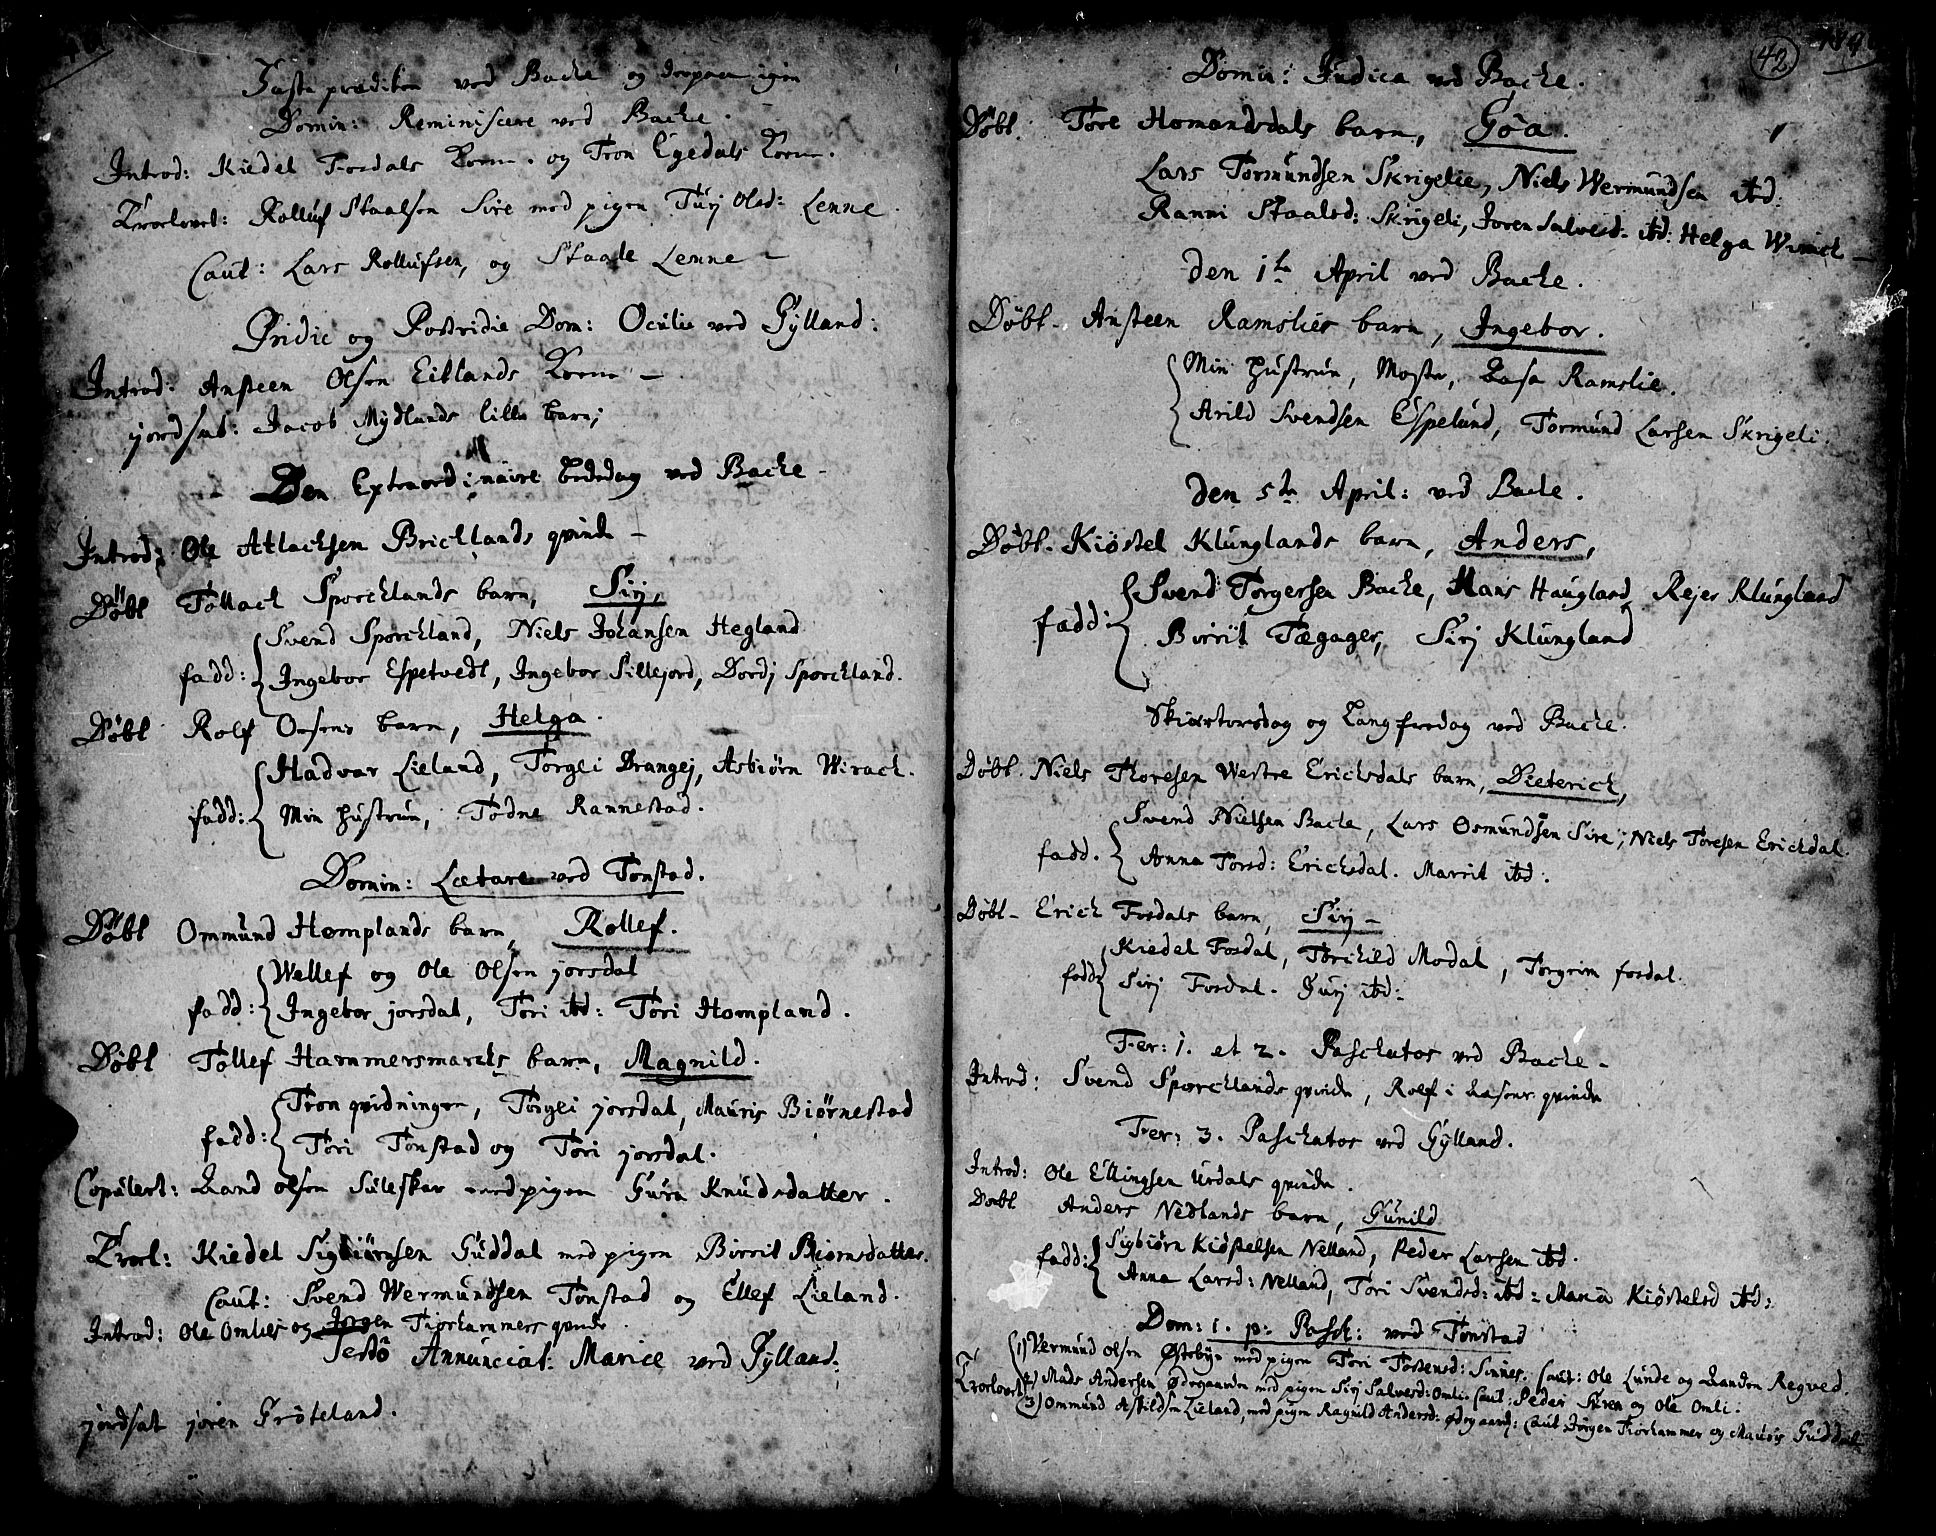 Faste prædiken ved Bache og derpaa igien
Domin: Reminiscere ved Bache.
Introd: Kiedel Fosdals Kone. og Tron Egedals Kone.
Troelovet: Rolluf Staalsen Sire med pigen Turj Olsd: Lenne.
Caut: Lars Rollufsen, og Staale Lenne –
Pridie og Postridie Dom: Oculi ved Gylland:
Introd: Ansteen Olsen Eitlands Kone –
jordsat: Jacob Mydlands lille barn;
Den Extraordinaire Bededag ved Bache –
Introd: Ole Atlachsen Brichlands qvinde –
Døbt Tollach Sporchlands barn, Sirj,
fadd: Svend Sporchland, Niels Johansen Hegland
Ingebor Espetvedt, Ingebor Sillejord, Dordj Sporchland.
Døbt Rolf Osens barn, Helga.
Hadvar Lieland, Torgli Drangej, Asbiørn Wirach.
fadd: Min hustrue, Todne Rannestad.
Domin: Lætare ved Tonstad.
Døbt Ommund Homplands barn, Rollef.
Wellef og Ole Olsen jorsdal
fadd: Ingebor jorsdal, Tori ibd: Tori Hompland.
Døbt Tollef Hammersmarchs barn, Magnild.
Tron qvidningen, Torgli jorsdal, Mauris Biørnestad
fadd: Tori Tonstad og Tori jorsdal.
Copulert: Rand Olsen Suleskar med pigen Gura Knudsdatter.
Troel: Kiedel Sigbiørnsen Guddal med pigen Birrit Biornsdatter.
Caut: Svend Wermundsen Tonstad og Ellef Lieland.
Introd: Ole Omlies og Jorgen Fiorhammers qvinde.
Festo Annunciat: Mariæ ved Gylland:
jordsat joren Frøteland.
42
Domin: Judica ved Bache.
Døbt. Tore Homandsdals barn, Goa.
Lars Tormundsen Skrigelie, Niels Wermundsen ibd:
Ranni Staalsd: Skrigeli, Joren Salvesd: ibd: Helga Wirach –
Den 1te April ved Bache.
Døbt. Ansteen Ramslies barn, Ingebor.
Min hustrue, Moster, Aasa Ramslie.
Arild Svendsen Espelund, Tormund Larsen Skrigeli.
Den 5te April: ved Bache.
Døbt. Kiøstel Klunglands barn, Anders,
Svend Torgersen Bache, Hans Haugland, Rejer Klungland
fadd: Birrit Tægager, Sirj Klungland
Skiærtorsdag og Langfredag ved Bache.
Døbt. Niels Thoresen Westre Erichsdals barn, Dieterich,
Svend Nielsen Bache, Lars Osmundsen Sire, Niels Toresen Erichdal.
fadd. Anna Torsd: Erichsdal. Marrit ibd:.
Døbt – Erich Fosdals barn, Sirj –
Kiedel Fosdal, Torchild Modal, Torgrim fosdal.
fadd: Sirj Fosdal. Gurj ibd:
Fer: 1. et 2. Paschatos ved Bache –
Introd: Svend Sporchlands qvinde, Rolf i Aasens qvinde
Fer: 3. Paschatos ved Gylland.
Introd: Ole Ellingsen Urdals qvinde.
Døbt Anders Nedlands barn, Gunild
Sigbiørn Kiøstelsen Nelland, Peder Larsen ibd.
fadd: Anna Larsd: Nelland, Tori Svendsd: ibd: Maria Kiøstelsd ibd:
Dom: 1. p: Pasch: ved Tonstad
1) Vermund Olsen Østebye med pigen Tori Tostensd: Sinnes. Caut: Ole Lunde og Aanden Regved.
Troelovet 2) Mads Andersen Ødegaarden med pigen Sirj Salvesd: Omli. Caut: Peder Suren og Ole Omli:
3) Ommund Askildsen Lieland, med pigen Ragnild Andersd: Ødegaard: Caut Jørgen Fiorhammer og Mauris Guddal